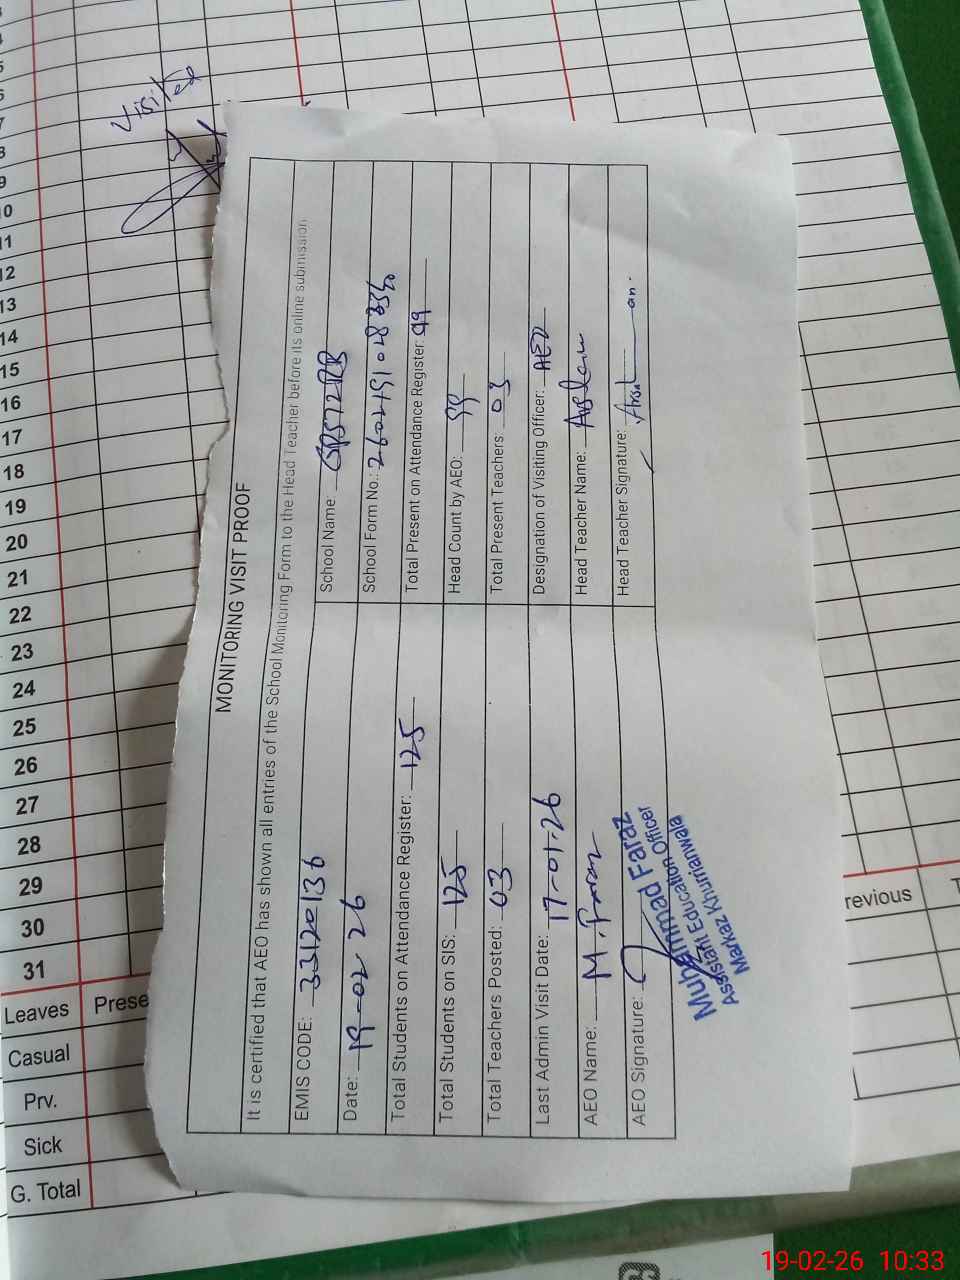 Visited
MONITORING VISIT PROOF
It is certified that AEO has shown all entries of the School Monitoring Form to the Head Teacher before its online submission
EMIS CODE: 33120136
School Name: GPS 572 RB
Date: 19-02-26
School Form No.:
Total Students on Attendance Register: 125
Total Present on Attendance Register: 99
Total Students on SIS: 125
Head Count by AEO: 99
Total Teachers Posted: 03
Total Present Teachers: 03
Last Admin Visit Date: 17-01-26
Designation of Visiting Officer: AEO
AEO Name: M. Faraz
Head Teacher Name:
AEO Signature:
Head Teacher Signature:
Muhammad Faraz
Assistant Education Officer
Markaz Khurrianwala
3
4
5
6
7
8
9
10
11
12
13
14
15
16
17
18
19
20
21
22
23
24
25
26
27
28
29
30
31
Leaves Prese
revious
Casual
Prv.
Sick
G. Total
19-02-26 10:33